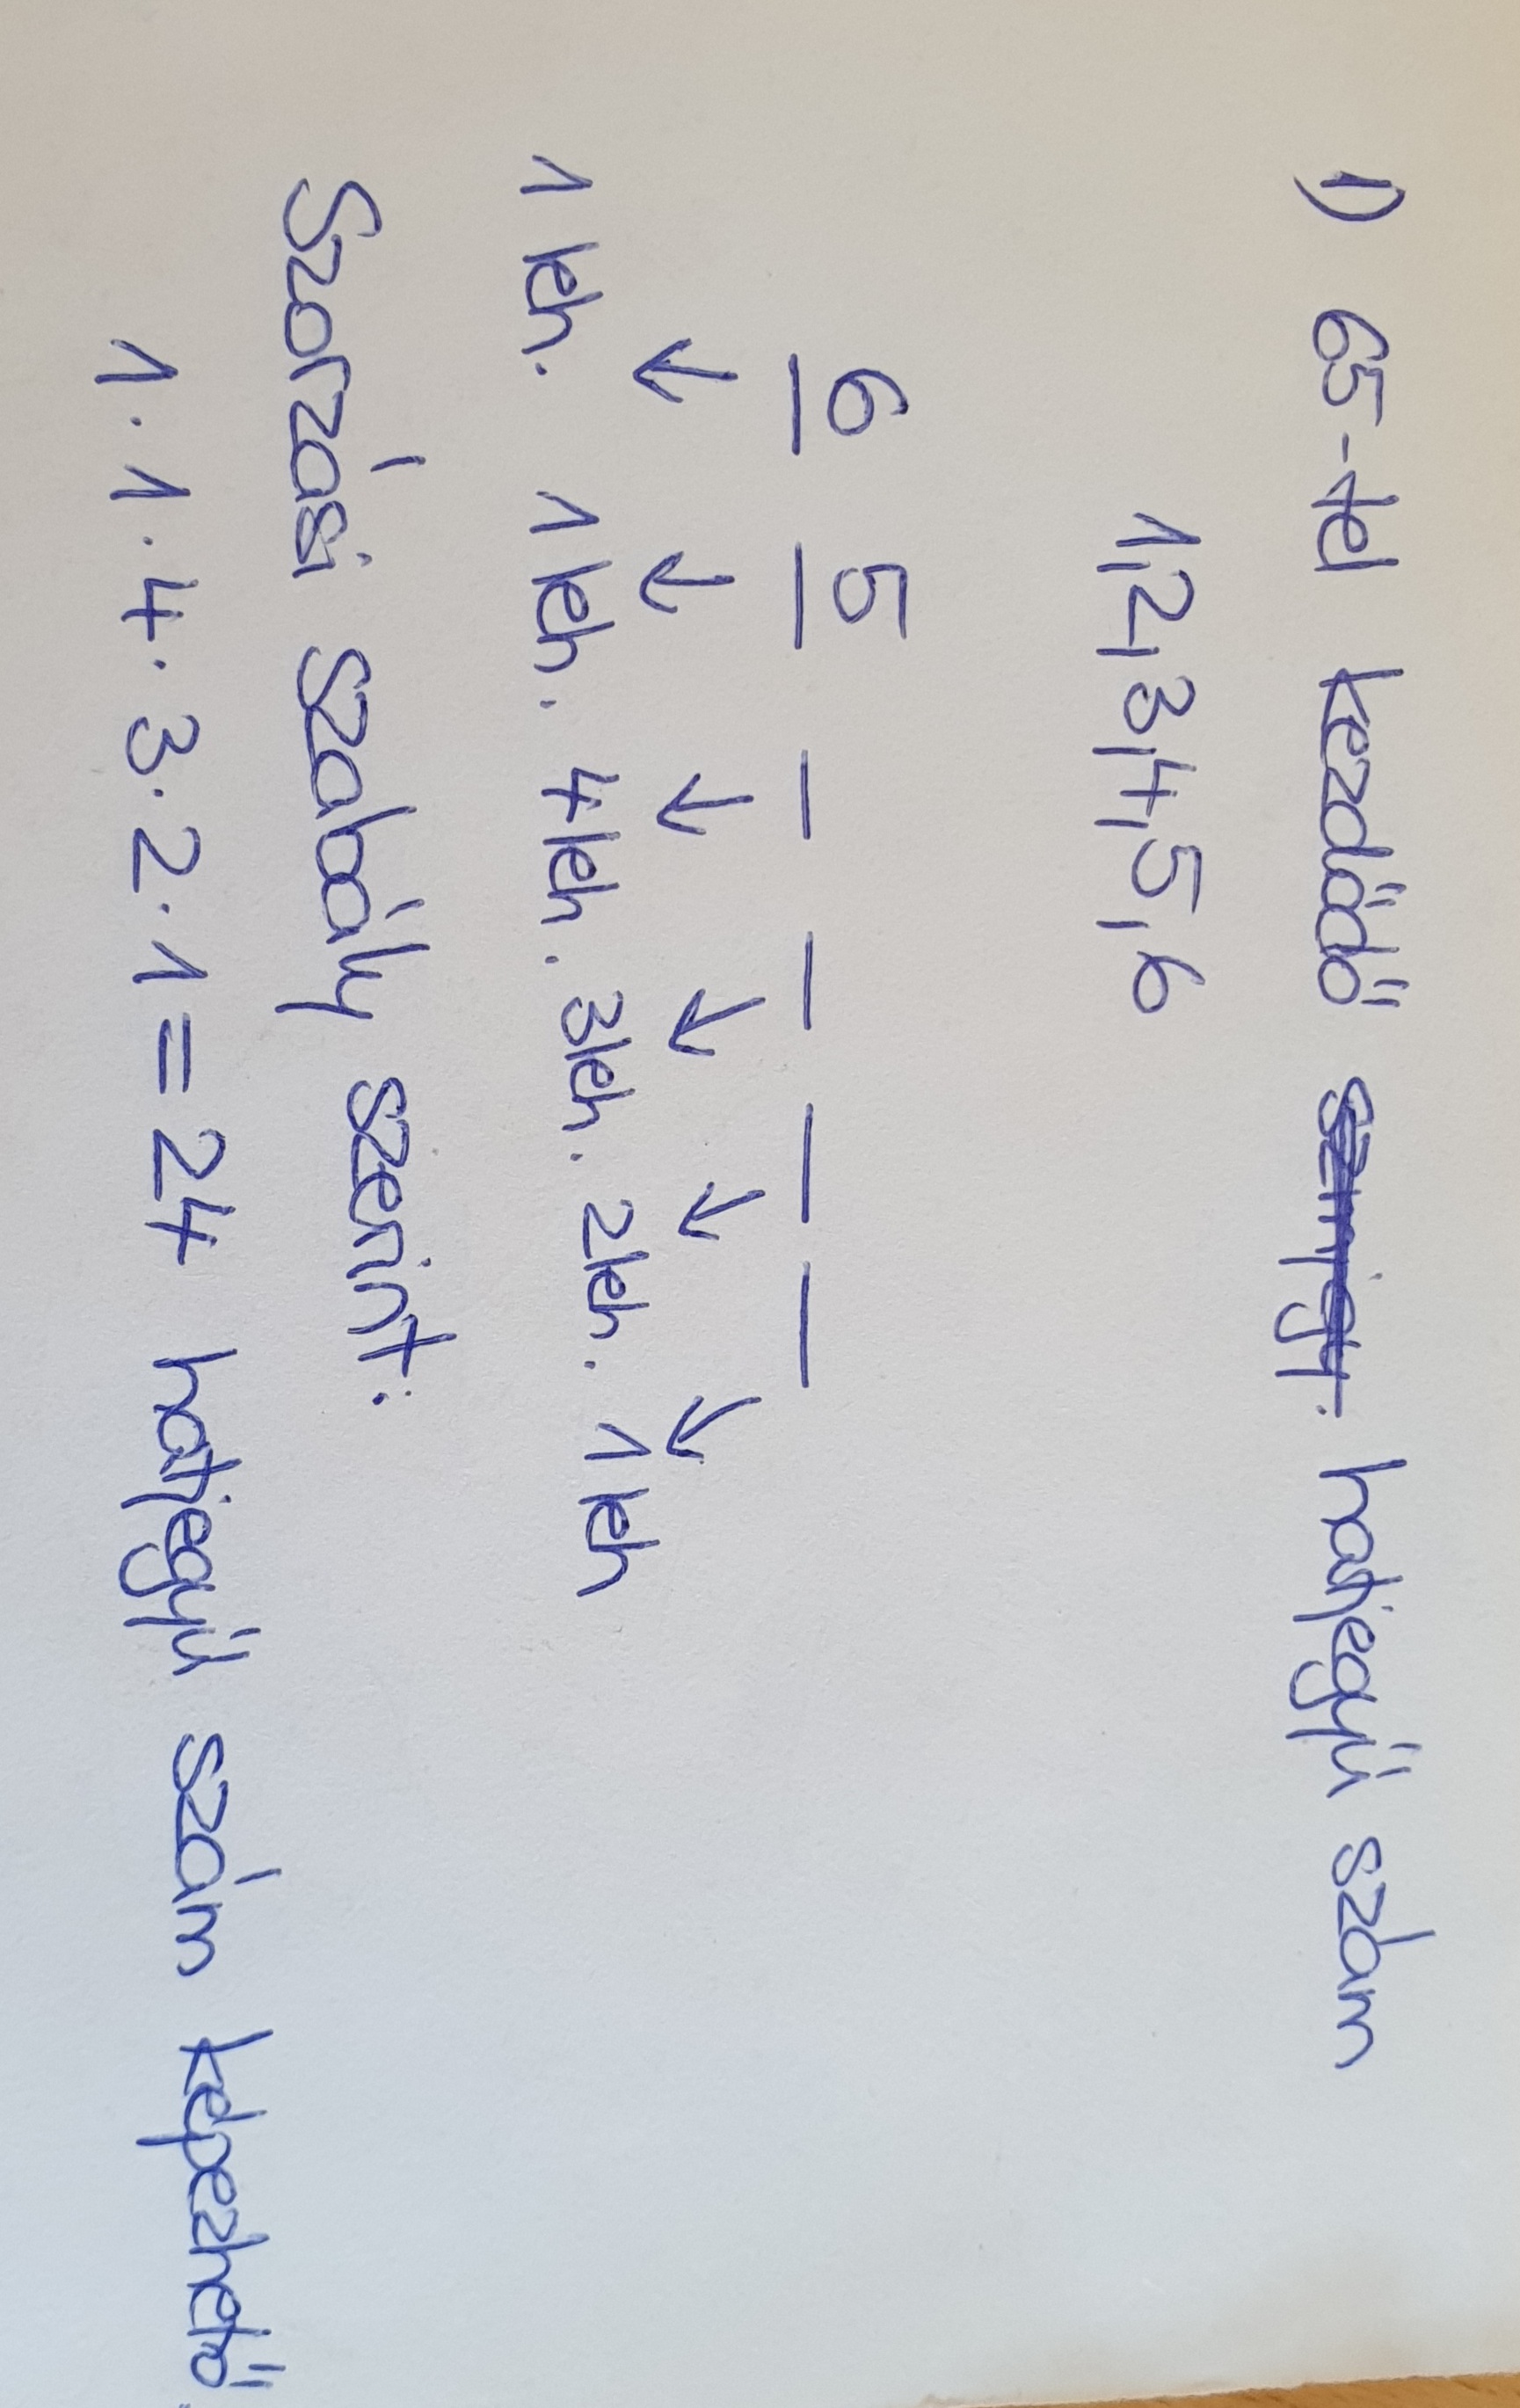 1) 65-tel kezdődő hatjegyű szám
1,2,3,4,5,6
6 5 _ _ _ _
↓ ↓ ↓ ↓ ↓ ↓
1 leh. 1 leh. 4 leh. 3 leh. 2 leh. 1 leh
Szorzási szabály szerint:
1·1·4·3·2·1=24 hatjegyű szám képezhető.